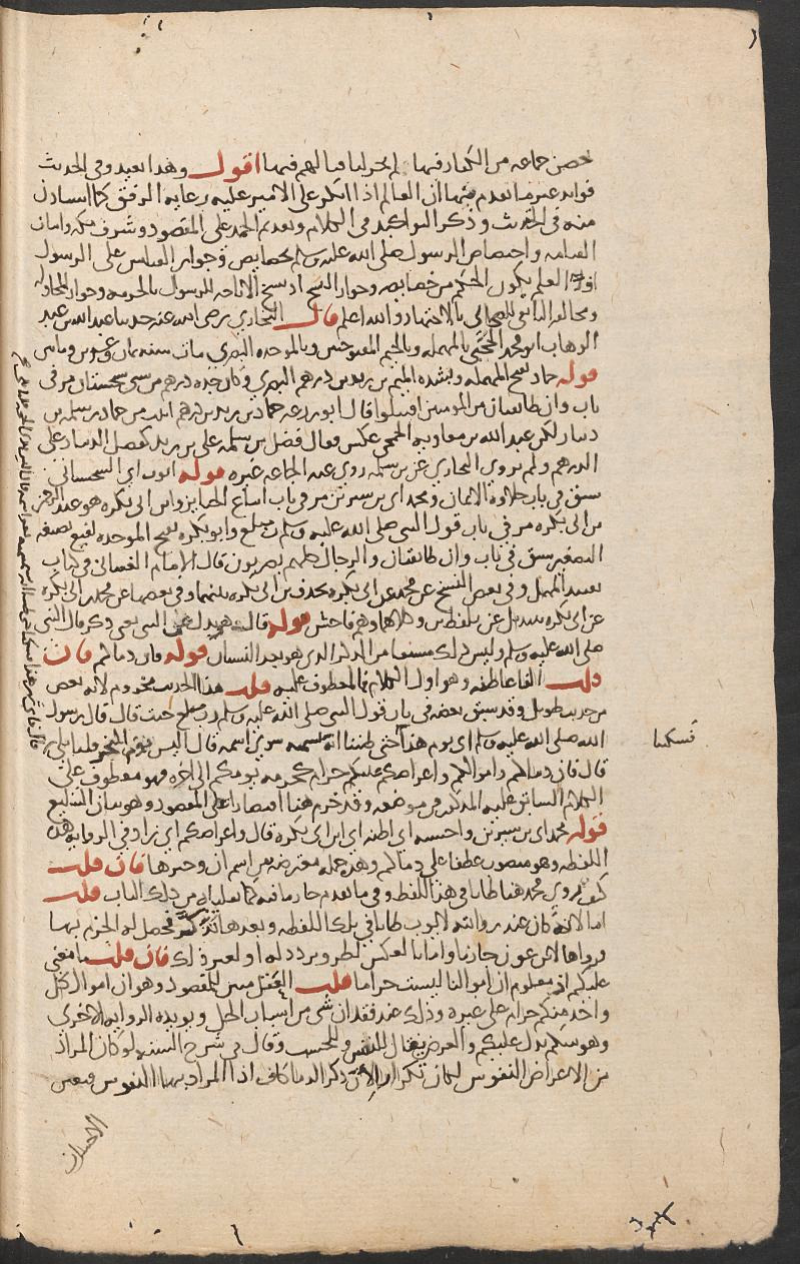 تحصن جماعة من الكفار فيها لم يجز لنا قتالهم فيها اقول وهذا بعيد وفي الحديث
فوائد غير ما تقدم منها ان العالم اذا انكر على الامير عليه رعاية الرفق كما استأذن
منه في الحديث وذكر التواكيد في الكلام وتقديم الحمد على المقصود وشرف مكة واثبات
القيامة واختصاص الرسول صلى الله عليه وسلم بخصايص وجواز القياس على الرسول
لولا العلم بكون الحكم من خصايصه وجواز النسخ اذ نسخ الاباحة للرسول بالحرمة وجواز المجادلة
ومخالفة التابعي للصحابي بالاجتهاد والله اعلم قال البخاري رضي الله عنه حدثنا عبد الله بن عبد
الوهاب ابو محمد الحجبي بالمهملة وبالجيم المفتوحتين وبالموحدة البصري مات سنة ثمان وعشرين ومايتين
قوله حماد بفتح المهملة وبشدة الميم بن زيد بن درهم البصري وكان جده درهم من سبي سجستان مر في
باب وان طائفتان من المومنين اقتتلوا قال ابو زرعة حماد بن زيد بن درهم اثبت من حماد بن سلمة بن
دينار لكن عبد الله بن معاوية الجمحي عكس فقال فضل بن سلمة على بن زيد كفضل الدينار على
الدرهم ولم يروي البخاري عن بن سلمة روى عنه الجماعة غيره قوله ايوب اي السختياني
سبق في باب حلاوة الايمان ومحمد اي بن سيرين مر في باب اتباع الجنايز وابن ابي بكرة هو عبد الرحمن
بن ابي بكرة مر في باب قول النبي صلى الله عليه وسلم رب مبلغ وابو بكرة بفتح الموحدة نفيع بصيغة
التصغير سبق في باب وان طائفتان والرجال كلهم بصريون قال الامام الغساني في كتاب
تقييد المهمل وفي بعض النسخ عن محمد عن ابي بكرة بحذف بن ابي بكرة بينهما وفي بعضها عن محمد بن ابي بكرة
عن ابي بكرة بتبديل عن بلفظ بن وكلاهما وهم فاحش قوله قال النبي يعني ذكر قال النبي
صلى الله عليه وسلم وليس ذلك مستعارا من الذكر الذي هو بعد النسيان قوله فان دماءكم فان
قلت الفاء عاطفة وهو اول الكلام فما المعطوف عليه قلت هذا الحديث مخروم لانه بعض
من حديث طويل وقد سبق بعضه في باب قول النبي صلى الله عليه وسلم رب مبلغ حيث قال قال رسول
الله صلى الله عليه وسلم اي يوم هذا حتى ظننا انه سيسميه سوى اسمه قال اليس يوم النحر قلنا بلى
فسكتنا
قال فان دماءكم واموالكم واعراضكم عليكم حرام كحرمة يومكم الى اخره فهو معطوف على
الكلام السابق عليه المذكور في موضعه وقد خرم هنا اقتصارا على المقصود وهو بيان التبليغ
قوله محمد اي بن سيرين واحسبه اي اظنه اي ابن ابي بكرة قال واعراضكم اي زاد في الرواية هذه
اللفظة وهو منصوب عطفا على دماءكم وهذه جملة معترضة بين اسم ان وخبرها فان قلت
كيف روى محمد هنا ظانا في هذا اللفظ وفي ما تقدم جازما فيه كما نقلناه من ذلك الباب قلت
اما لانه كان عند روايته لايوب ظانا في تلك اللفظة وبعدها تذكر فحصل له الجزم بها
فرواها لابن عون جازما واما بالعكس لطرو تردد له او لغير ذلك فان قلت ما معنى
عليكم اذ معلوم ان اموالنا ليست حراما علينا قلت العقل مبين للمقصود وهو ان اموال كل
واحد منكم حرام على غيره وذلك عند فقدان شي من اسباب الحل ويويده الرواية الاخرى
وهو بينكم بدل عليكم والعرض يقال للنفس وللحسب وقال في شرح السنة لو كان المراد
من الاعراض النفوس لكان تكرارا لان ذكر الدماء كاف اذا المراد بها النفوس فيعين
الاحسان